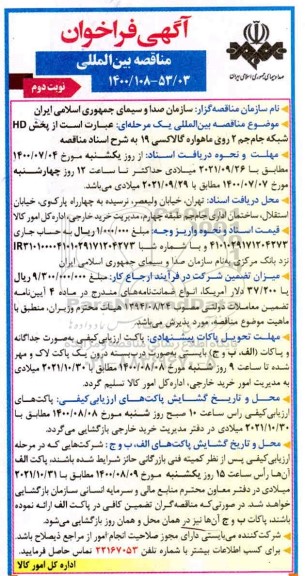 آگهی فراخوان
مناقصه بین‌المللی
۱۴۰۰/۱۰۸-۵۳/۰۳
نوبت دوم
صدا و سیمای جمهوری اسلامی ایران
نام سازمان مناقصه‌گزار: سازمان صدا و سیمای جمهوری اسلامی ایران
موضوع مناقصه بین‌المللی یک مرحله‌ای: عبارت است از پخش HD
شبکه جام‌جم ۲ روی ماهواره گالاکسی ۱۹ به شرح اسناد مناقصه
مهلت و نحوه دریافت اسناد: از روز یکشنبه مورخ ۱۴۰۰/۰۷/۰۴
مطابق با ۲۰۲۱/۰۹/۲۶ میلادی حداکثر تا ساعت ۱۲ روز چهارشنبه
مورخ ۱۴۰۰/۰۷/۰۷ مطابق با ۲۰۲۱/۰۹/۲۹ میلادی می‌باشد.
محل دریافت اسناد: تهران، خیابان ولیعصر، نرسیده به چهارراه پارک‌وی، خیابان
استقلال، ساختمان اداری جام جم، طبقه چهارم، مدیریت خرید خارجی، اداره کل امور کالا
قیمت اسناد و نحوه واریز وجه: مبلغ ۱/۰۰۰/۰۰۰ ریال به حساب جاری
۴۱۰۱۰۲۹۱۷۱۲۰۴۲۷۳ و با شماره شبا IR۳۱۰۱۰۰۰۰۴۱۰۱۰۲۹۱۷۱۲۰۴۲۷۳
نزد بانک مرکزی به‌نام سازمان صدا و سیمای جمهوری اسلامی ایران
میزان تضمین شرکت در فرآیند ارجاع کار: مبلغ ۹/۳۰۰/۰۰۰/۰۰۰ ریال
یا ۳۷/۲۰۰ دلار آمریکا، انواع ضمانت‌نامه‌های مندرج در ماده ۴ آیین‌نامه
تضمین معاملات دولتی مصوب ۱۳۹۴/۰۸/۲۴ هیات محترم وزیران، منطبق با
ماهیت موضوع مناقصه، مورد پذیرش می‌باشد.
مهلت تحویل پاکات پیشنهادی: پاکت ارزیابی کیفی به‌صورت جداگانه
و پاکات (الف، ب و ج) بایستی به‌صورت دربسته درون یک پاکت لاک و مهر
شده تا ساعت ۹ روز شنبه مورخ ۱۴۰۰/۰۸/۰۸ مطابق با ۲۰۲۱/۱۰/۳۰ میلادی
به مدیریت امور خرید خارجی، اداره کل امور کالا تسلیم گردد.
محل و تاریخ گشایش پاکت‌های ارزیابی‌کیفی: پاکت‌های
ارزیابی‌کیفی راس ساعت ۱۰ صبح روز شنبه مورخ ۱۴۰۰/۰۸/۰۸ مطابق با
۲۰۲۱/۱۰/۳۰ میلادی در دفتر مدیریت خرید خارجی بازگشایی می‌گردد.
محل و تاریخ گشایش پاکت‌های الف، ب و ج: شرکت‌هایی که در مرحله
ارزیابی‌کیفی پس از نظر کمیته فنی بازرگانی حائز شرایط شده باشند، پاکت الف
آن‌ها رأس ساعت ۱۵ روز یکشنبه مورخ ۱۴۰۰/۰۸/۰۹ مطابق با ۲۰۲۱/۱۰/۳۱
میلادی در دفتر معاون محترم منابع مالی و سرمایه انسانی سازمان بازگشایی
خواهد شد. در صورتی‌که مناقصه‌گران تضمین کافی در پاکت الف ارائه نموده
باشند، پاکات ب و ج آن‌ها نیز در همان محل و همان روز بازگشایی می‌شود.
شرکت‌کننده می‌بایستی دارای مجوز صلاحیت انجام امور از مراجع ذیصلاح باشد.
برای کسب اطلاعات بیشتر با شماره تلفن ۲۲۱۶۷۰۵۳ تماس حاصل فرمایید.
اداره کل امور کالا